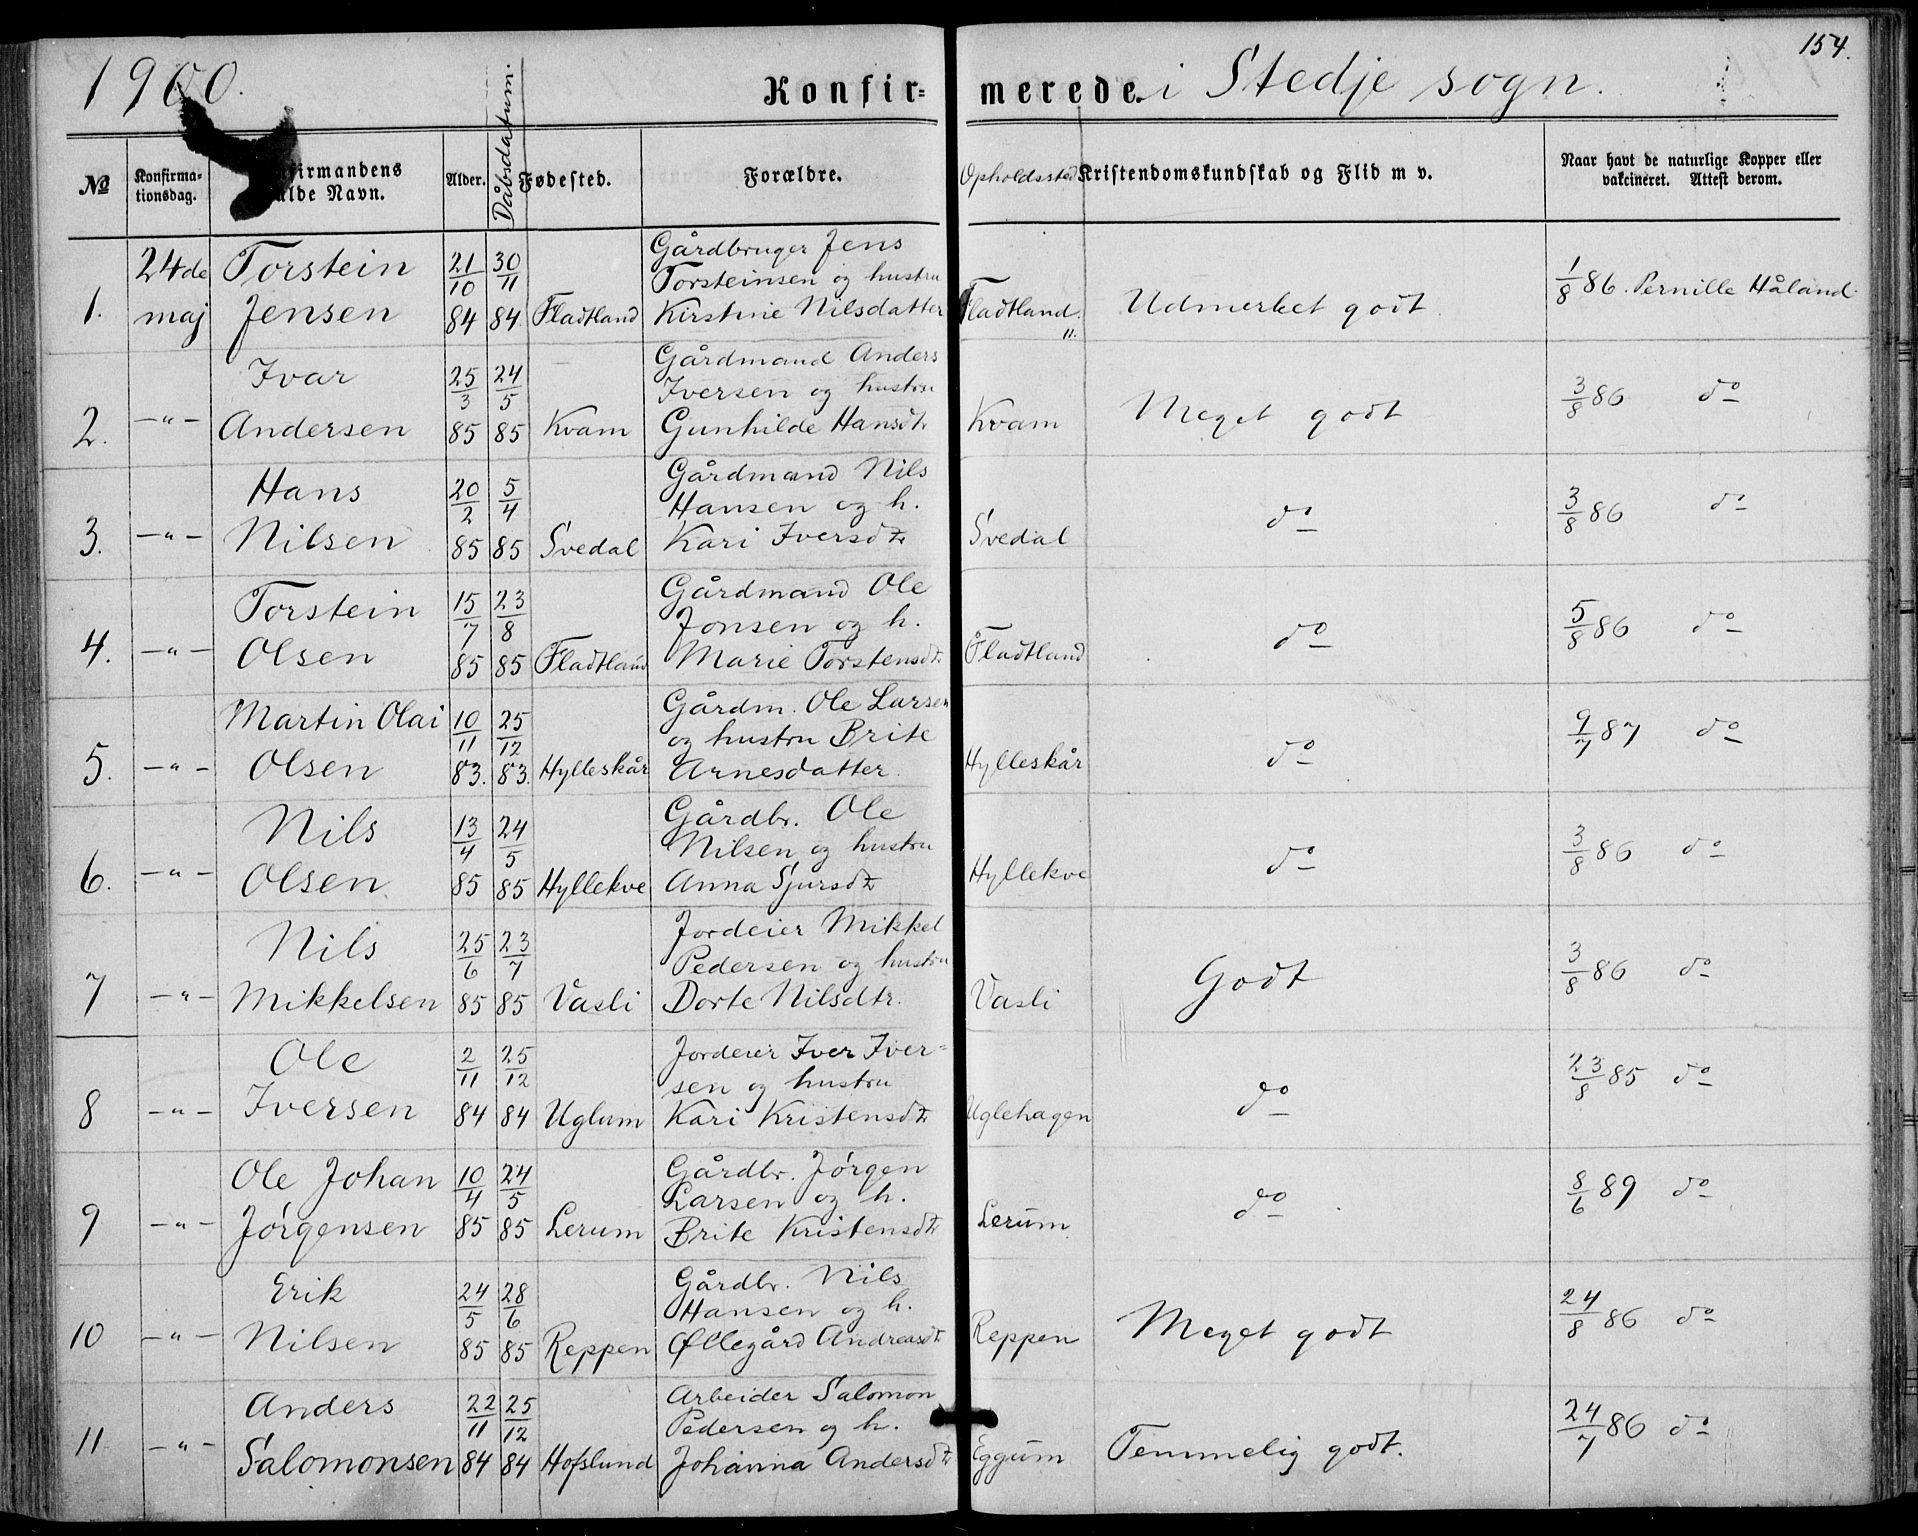 154.
1900. Konfir= merede i Stedje sogn.
№ Konfirma- firmandens Alder. Dåbsdatum. Fødested. Forældre. Opholdssted Kristendomskundskab og Flid m v. Naar havt de naturlige Kopper eller
tionsdag. ulde Navn. vakcineret. Attest derom.
24de Torstein 21/10 30/11 Gårdbruger Jens
Torsteinsen og hustru 1/8 86. Pernille Håland.
1. maj Jensen 84 84. Fladtland Kirstine Nilsdatter Fladtland. Udmerket godt
Ivar 25/3 24/5 Gårdmand Anders
Iversen og hustru 3/8 86 do
2. -"- Andersen 85 85 Kvam Gunhilde Hansdtr Kvam Meget godt
Hans 20/2 5/4 Gårdmand Nils
Hansen og h. 3/8 86 do
3. -"- Nilsen 85 85 Svedal Kari Iversdtr Svedal do
Torstein 15/7 23/8 Gårdmand Ole
Jonsen og h. 5/8 86 do
4. -"- Olsen 85 85 Fladtland Marie Torstensdtr Fladtland do
Martin Olai 10/11 25/12 Gårdm. Ole Larsen
og hustru Brite 9/7 87 do
5. -"- Olsen 83. 83. Hylleskår Arnesdatter. Hylleskår do
Nils 13/4 24/5 Gårdbr. Ole
Nilsen og hustru 3/8 86 do
6. -"- Olsen 85 85 Hyllekve Anna Sjursdtr Hyllekve do
Nils 25/6 23/7 Jordeier Mikkel
Pedersen og hustru 3/8 86 do
7 -"- Mikkelsen 85 85 Vasli Dorte Nilsdtr. Vasli Godt
Ole 2/11 25/12 Jordeier Iver Iver=
sen og hustru 23/8 85 do
8 -"- Iversen 84 84 Uglum Kari Kristensdtr Uglehagen do
Ole Johan 10/4 24/5 Gårdbr. Jørgen
Larsen og h. 8/6 89 do
9 -"- Jørgensen 85 85 Lerum Brite Kristensdtr Lerum do
Erik 24/5 28/6 Gårdbr. Nils
Hansen og h. 24/8 86 do
10 -"- Nilsen 85 85 Reppen Øllegård Andreasdtr Reppen Meget godt
Anders 22/11 25/12 Arbeider Salomon
Pedersen og h. 24/7 86 do
11 -"- Salomonsen 84 84 Hofslund Johanna Andersdtr Eggum Temmelig godt.